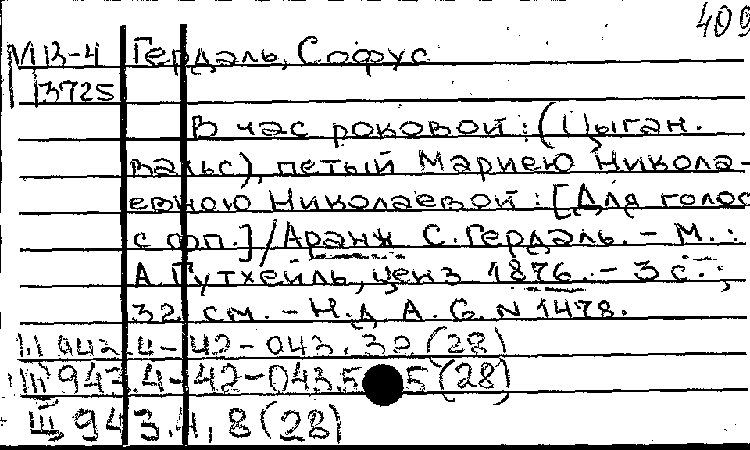 409
МЗ-4 Гердаль, Софус
3725
В час роковой: (Цыган.
вальс), петый Мариею Никола-
евною Николаевой: [Для голос
с фп.] / Аранж С. Гердаль. - М.:
А. Гутхейль, ценз 1876. - 3 с.;
32 см. - Н.д А. G. N 1478.
Ш 943.4-42-043.5 5 (28)
Ш 943.4,8 (28)